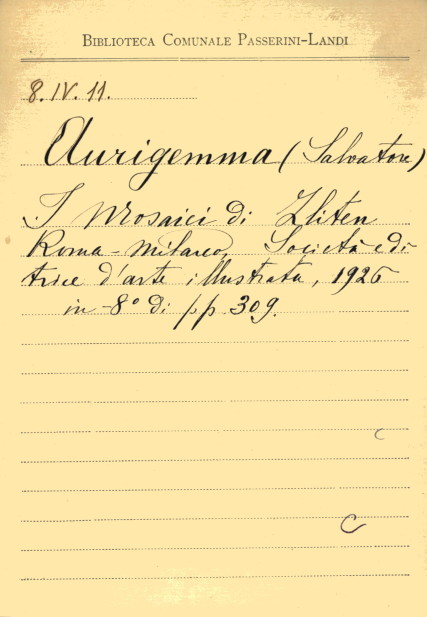 BIBLIOTECA COMUNALE PASSERINI-LANDI
8. IV. 11.
Aurigemma (Salvatore)
I Mosaici di Zliten
Roma-Milano, Società edi
trice d'arte illustrata, 1926
in-8° di pp. 309.
C
C